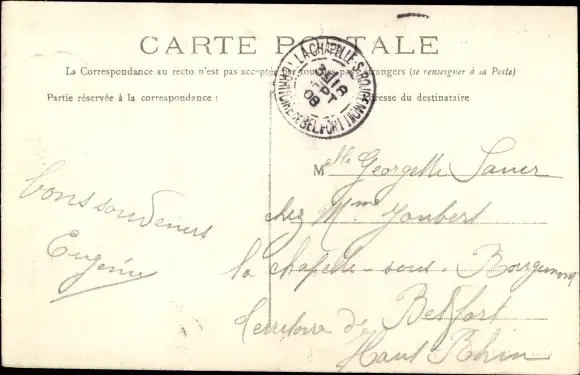 CARTE POSTALE
La Correspondance au recto n'est pas acceptée par tous les pays étrangers (se renseigner à sa Poste)
Partie réservée à la correspondance :
Adresse du destinataire
LA CHAPELLE-S-ROUGEMONT
TERRITOIRE DE BELFORT
08
bons souvenirs
Eugénie
Melle Georgette Sauer
chez Mme Joubert
la chapelle-sous-Bourgemont
Territoire de Belfort
Haut Rhin